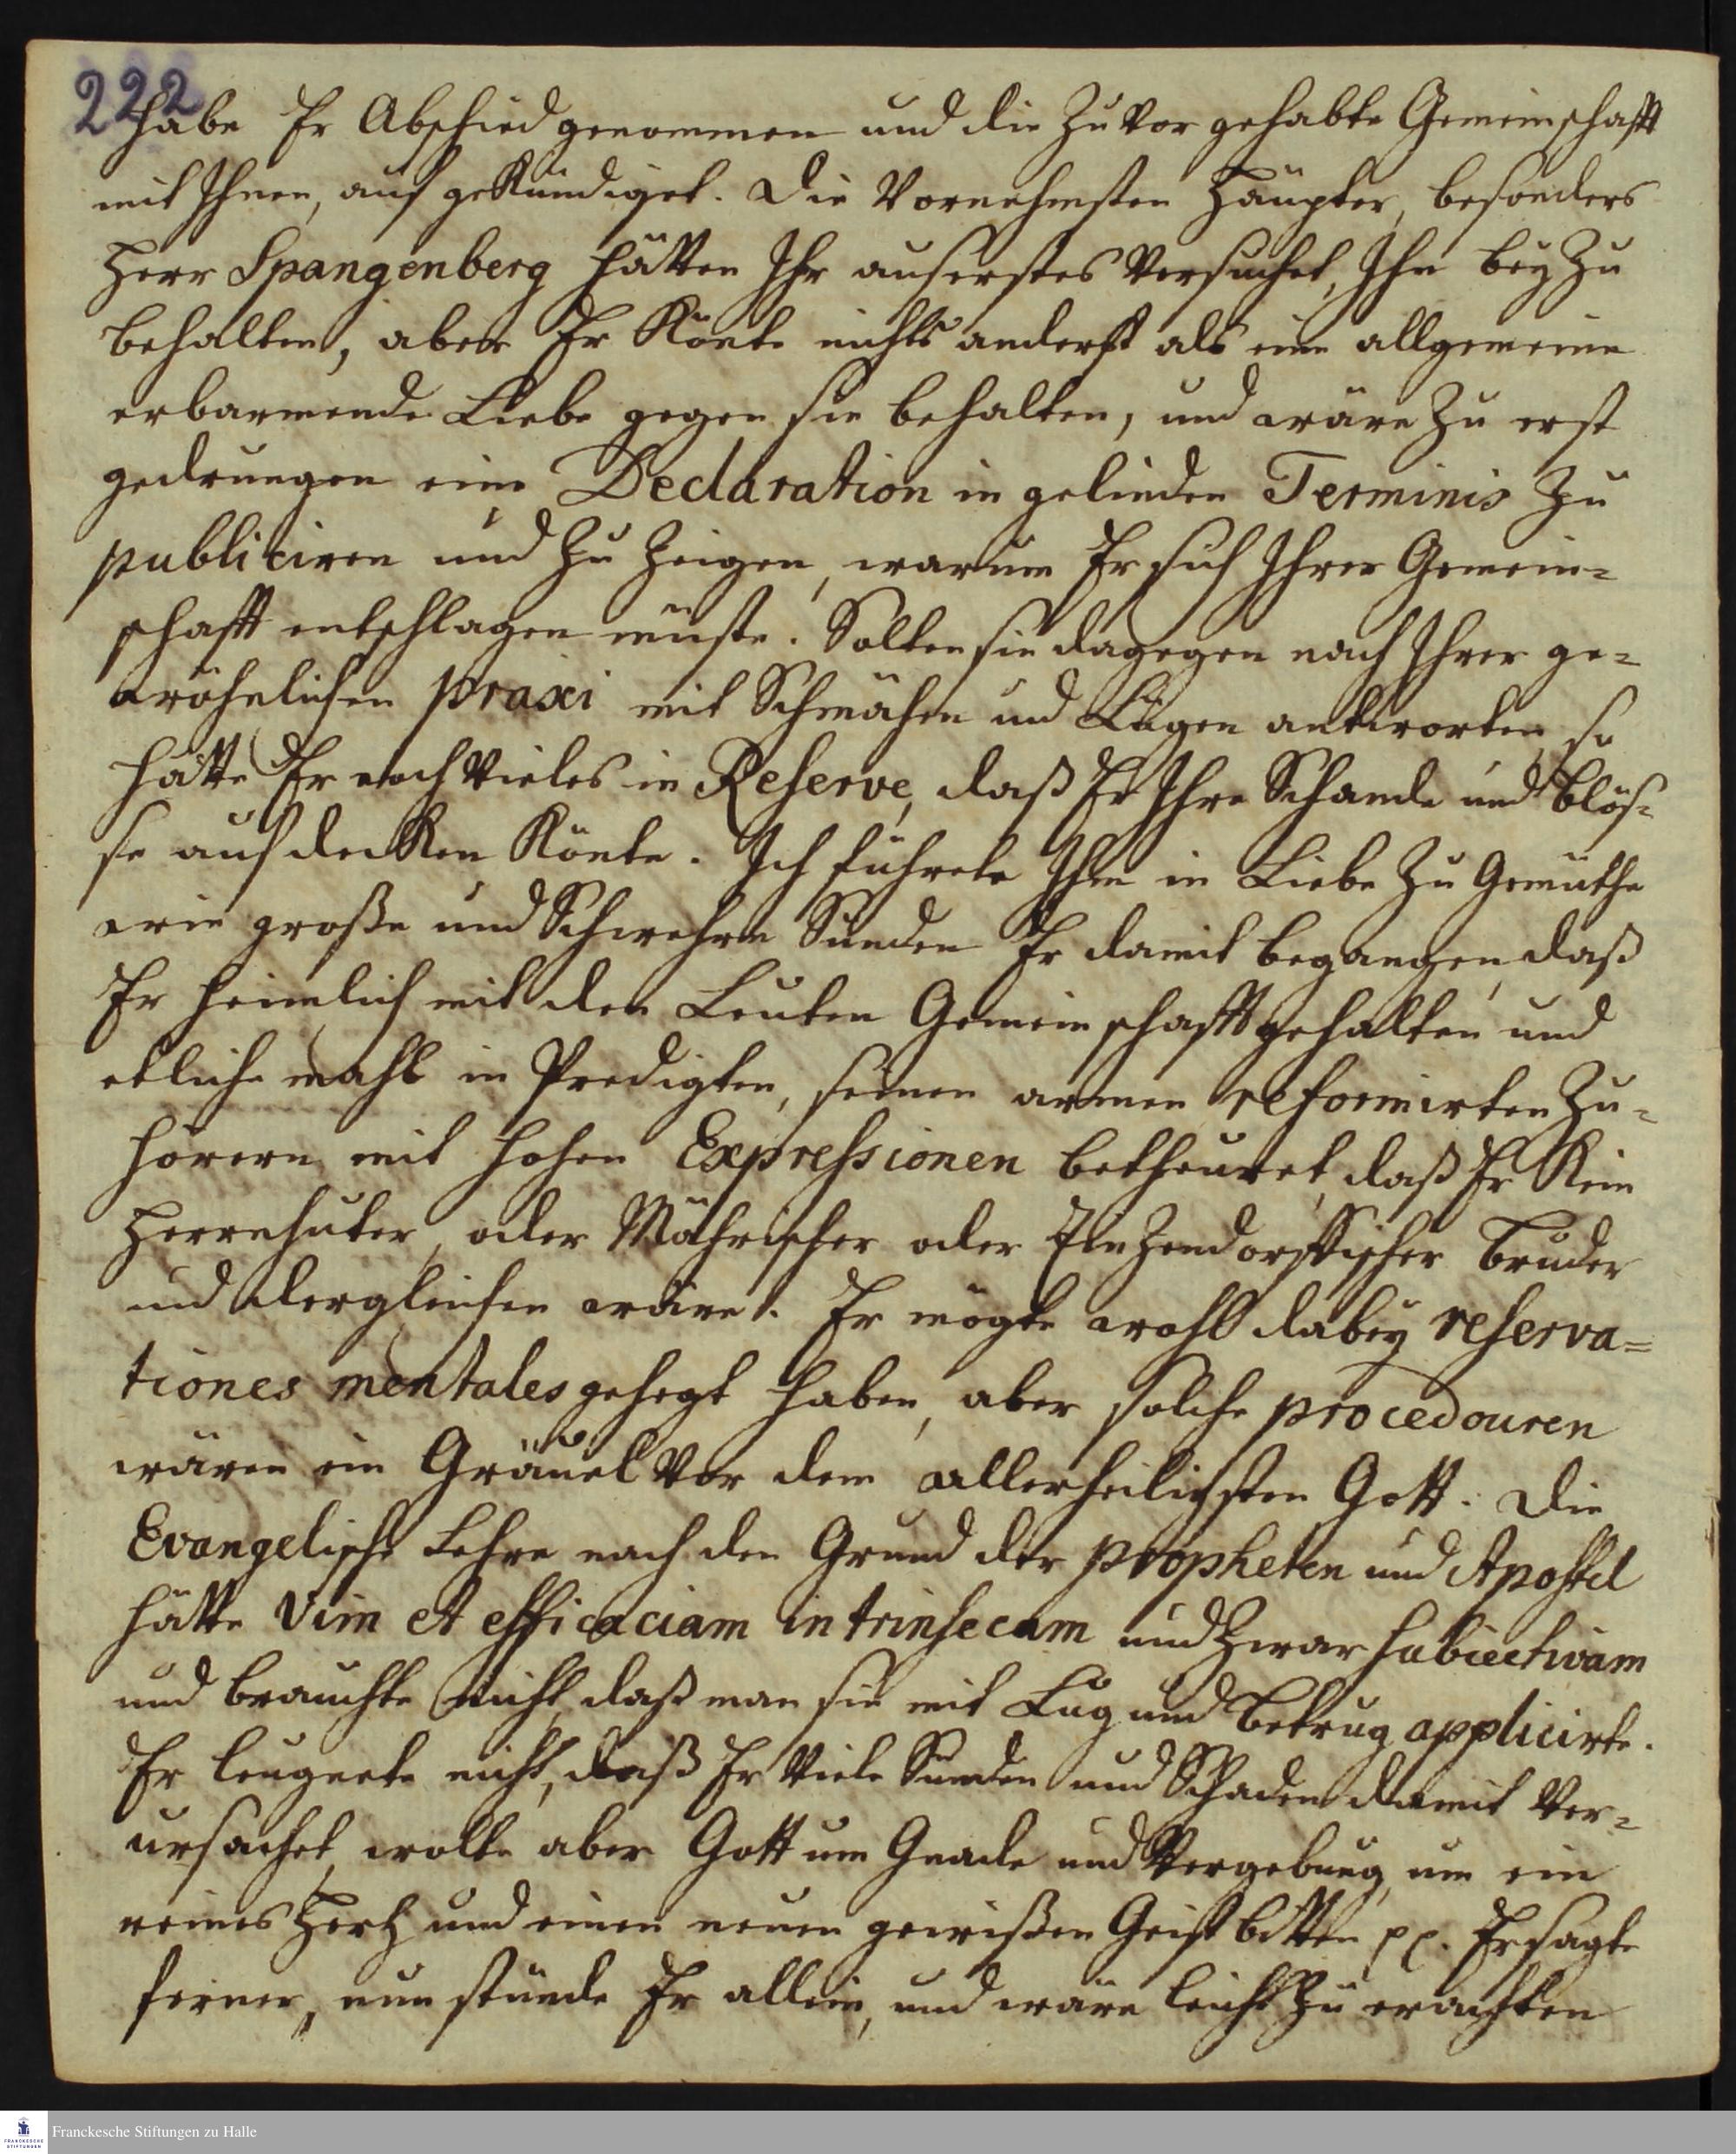 222
habe Er Abschied genommen und die Zuvor gehabte Gemeinschafft
mit Ihnen, auf gekündiget. Die Vornehmsten Häupter, besonders
Herr Spangenberg hätten Ihr auserstes Versuchet, Ihn bey Zu
behalten, aber Er Könte nichts anderst als eine allgemeine
erbarmende Liebe gegen sie behalten, und wäre Zu erst
gedrungen eine Declaration in gelinden Terminis Zu
publiciren und Zu Zeigen, warum Er sich Ihrer Gemein=
schafft entschlagen müste. Solten sie dagegen nach Ihrer ge=
wöhnlichen praxi mit Schmähen und Lügen antworten, so
hätte Er noch Vieles in Reserve, daß Er Ihre Schande und Blös=
se aufdecken Könte. Ich führete Ihm in Liebe Zu Gemüthe
wie große und Schwehre Sünden Er damit begangen, daß
Er heimlich mit den Leuten Gemeinschafft gehalten und
etliche mahl in Predigten, seinen armen reformirten Zu=
hörern mit hohen Expressionen betheuret, daß Er Kein
Herrnhuter, oder Mährischer oder Zinzendorffischer Bruder
und dergleichen wäre. Er mögte wohl dabey reserva=
tiones mentales gehegt haben, aber solche procedouren
wären ein Gräuel vor dem allerheiligsten Gott. Die
Evangelische Lehre nach den Grund der propheten und Apostel
hätte Vim et efficaciam intrinsecam und Zwar subiectivam
und brauchte nicht, daß man sie mit Lug und Betrug applicirte.
Er leugnete nicht, daß Er Viele Sünden und Schaden damit Ver=
ursachet, wolte aber Gott um Gnade und Vergebung, um ein
reines Hertz und einen neuen gewißen Geist bitten pp. Er sagte
ferner, nun stünde Er allein, und wäre leicht Zu erachten
Franckesche Stiftungen zu Halle
FRANCKESCHE
STIFTUNGEN